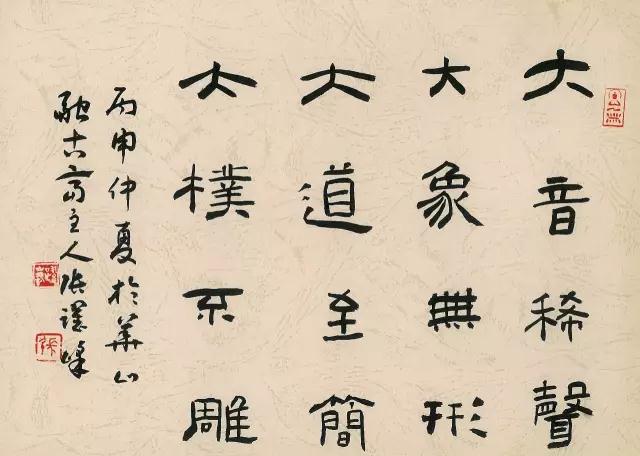 大音稀聲
大象無形
大道至簡
大樸不雕
丙申仲夏於華山
融古齋主人張